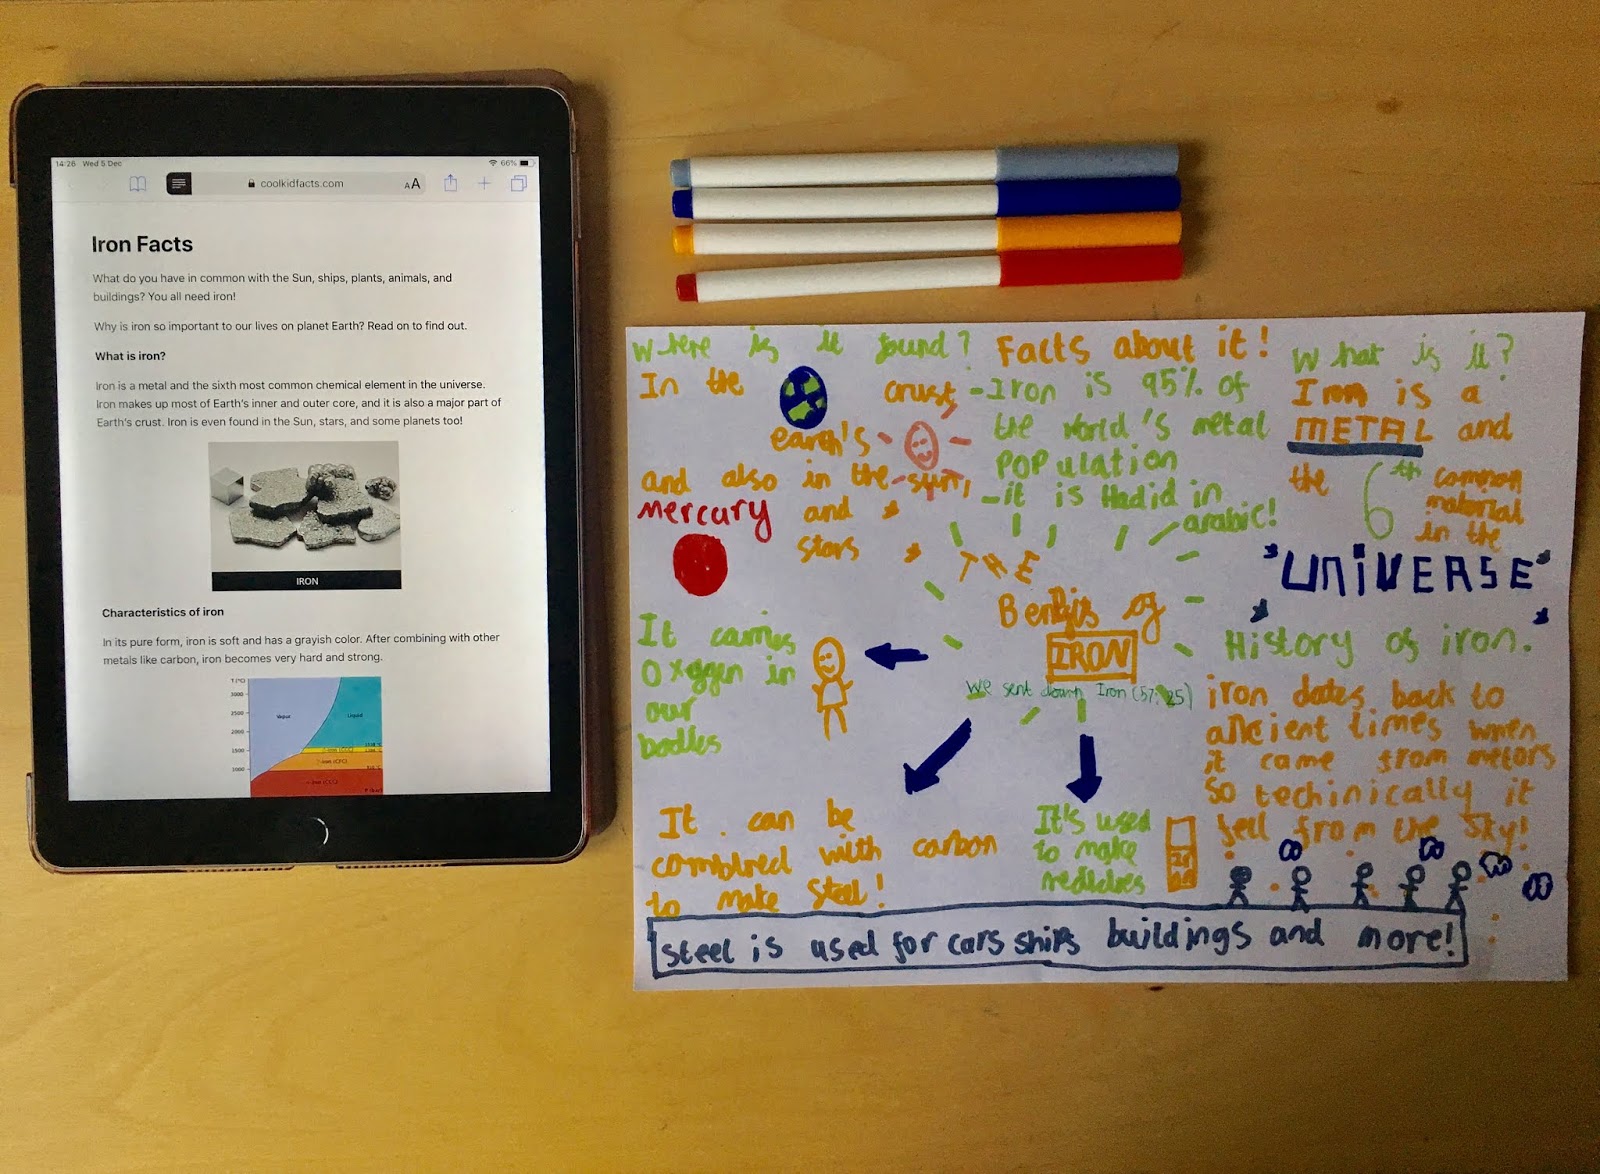 14:26 Wed 5 Dec
66%
coolkidfacts.com
AA
Iron Facts
What do you have in common with the Sun, ships, plants, animals, and
buildings? You all need iron!
Why is iron so important to our lives on planet Earth? Read on to find out.
What is iron?
Iron is a metal and the sixth most common chemical element in the universe.
Iron makes up most of Earth's inner and outer core, and it is also a major part of
Earth's crust. Iron is even found in the Sun, stars, and some planets too!
IRON
Characteristics of iron
In its pure form, iron is soft and has a grayish color. After combining with other
metals like carbon, iron becomes very hard and strong.
3000
2500
2000
1500
1000
Liquid
Where is it found?
In the crust,
earth's
and also in the sun,
mercury and
stars
Facts about it!
-Iron is 95% of
the world's metal
POPulation
-it is Hadid in
arabic!
What is it?
Iron is a
METAL and
the 6th common
material
in the
"UNIVERSE"
THE
Benefits of
IRON
We sent down Iron (57:25)
It carries
Oxegen in
our
bodies
It can be
combined with carbon
to make steel!
It's used
to make
History of iron.
iron dates back to
ancient times when
it came from metors
So techinically it
fell from the sky!
steel is used for cars ships buildings and more!